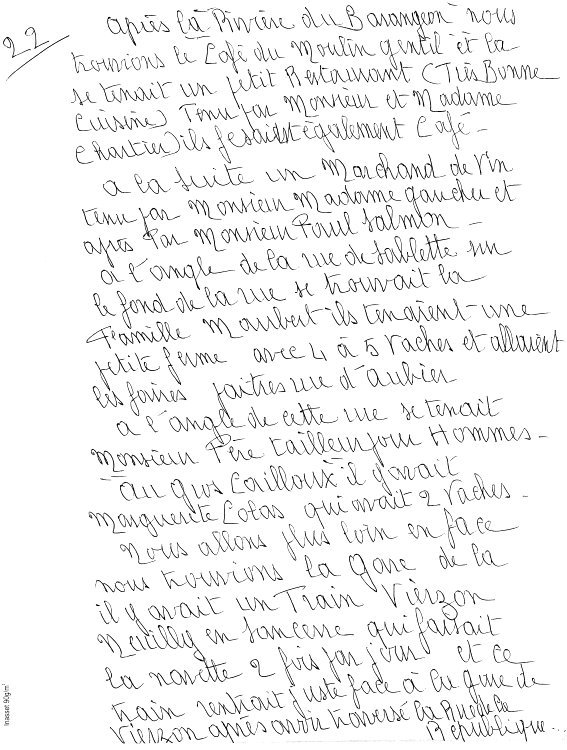 22
après là Rivière du Barangeon nous
trouvions le Café du Moulin gentil et la
se tenait un petit Restaurant (Très Bonne
Cuisine) Tenu par Monsieur et Madame
Chartier) ils fesaient également Café -
a la suite un Marchand de Vin
tenu par Monsieur Madame gaucher et
après Par Monsieur Paul Salmon -
a l'angle de la rue de Sablette sur
le fond de la rue se trouvait la
Famille Maubert ils tenaient une
petite ferme avec 4 à 5 Vaches et allaient
les faires paitres rue d'Aubier
a l'angle de cette rue se tenait
Monsieur Père tailleur pour Hommes -
Au Gros Cailloux il y avait
Marguerite Colas qui avait 2 Vaches -
Nous allons plus loin en face
nous trouvions la Gare de la
il y avait un Train Vierzon
Neuilly en Sancerre qui faisait
la navette 2 fois par jour et ce
train rentrait juste face à la gare de
Vierzon après avoir traversé la Rue de la
République...
Inasset 90g/m²